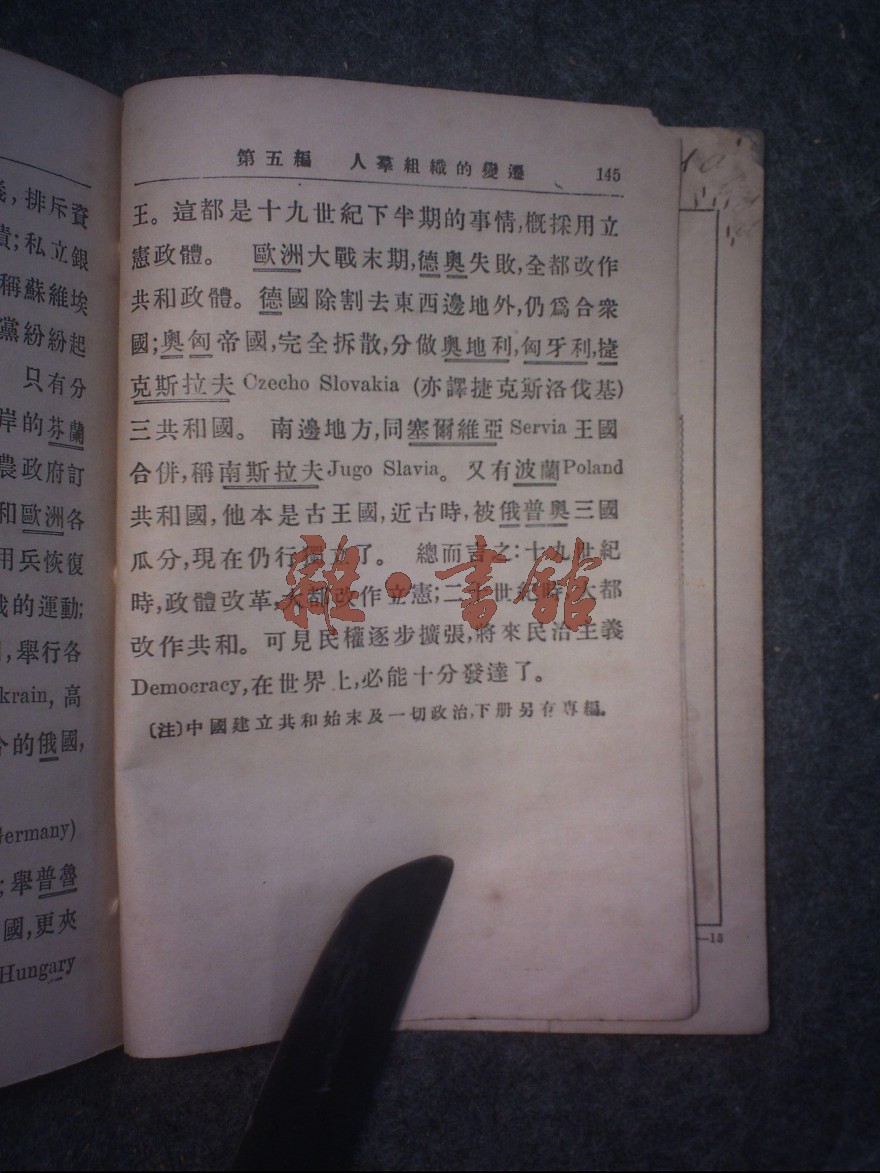 義,排斥資
責;私立銀
稱蘇維埃
黨紛紛起
只有分
岸的芬蘭
農政府訂
和歐洲各
用兵恢復
的運動;
,舉行各
krain, 高
的俄國,
Germany)
;舉普魯
國,更夾
Hungary
第五編 人羣組織的變遷 145
王。這都是十九世紀下半期的事情,概採用立
憲政體。 歐洲大戰末期,德奧失敗,全都改作
共和政體。德國除割去東西邊地外,仍爲合衆
國;奧匈帝國,完全拆散,分做奧地利,匈牙利,捷
克斯拉夫 Czecho Slovakia (亦譯捷克斯洛伐基)
三共和國。 南邊地方,同塞爾維亞 Servia 王國
合併,稱南斯拉夫 Jugo Slavia。 又有波蘭 Poland
共和國,他本是古王國,近古時,被俄普奧三國
瓜分,現在仍行獨立了。 總而言之:十九世紀
時,政體改革,大都改作立憲;二十世紀時,大都
改作共和。可見民權逐步擴張,將來民治主義
Democracy,在世界上,必能十分發達了。
〔注〕中國建立共和始末及一切政治,下册另有專編。
雜·書館
—15